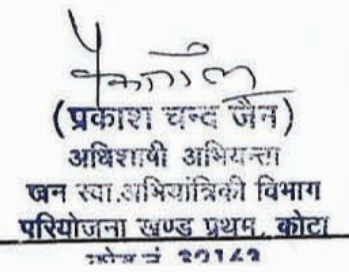 (प्रकाश चन्द जैन)
अधिशाषी अभियन्ता
जन स्वा.अभियांत्रिकी विभाग
परियोजना खण्ड प्रथम, कोटा